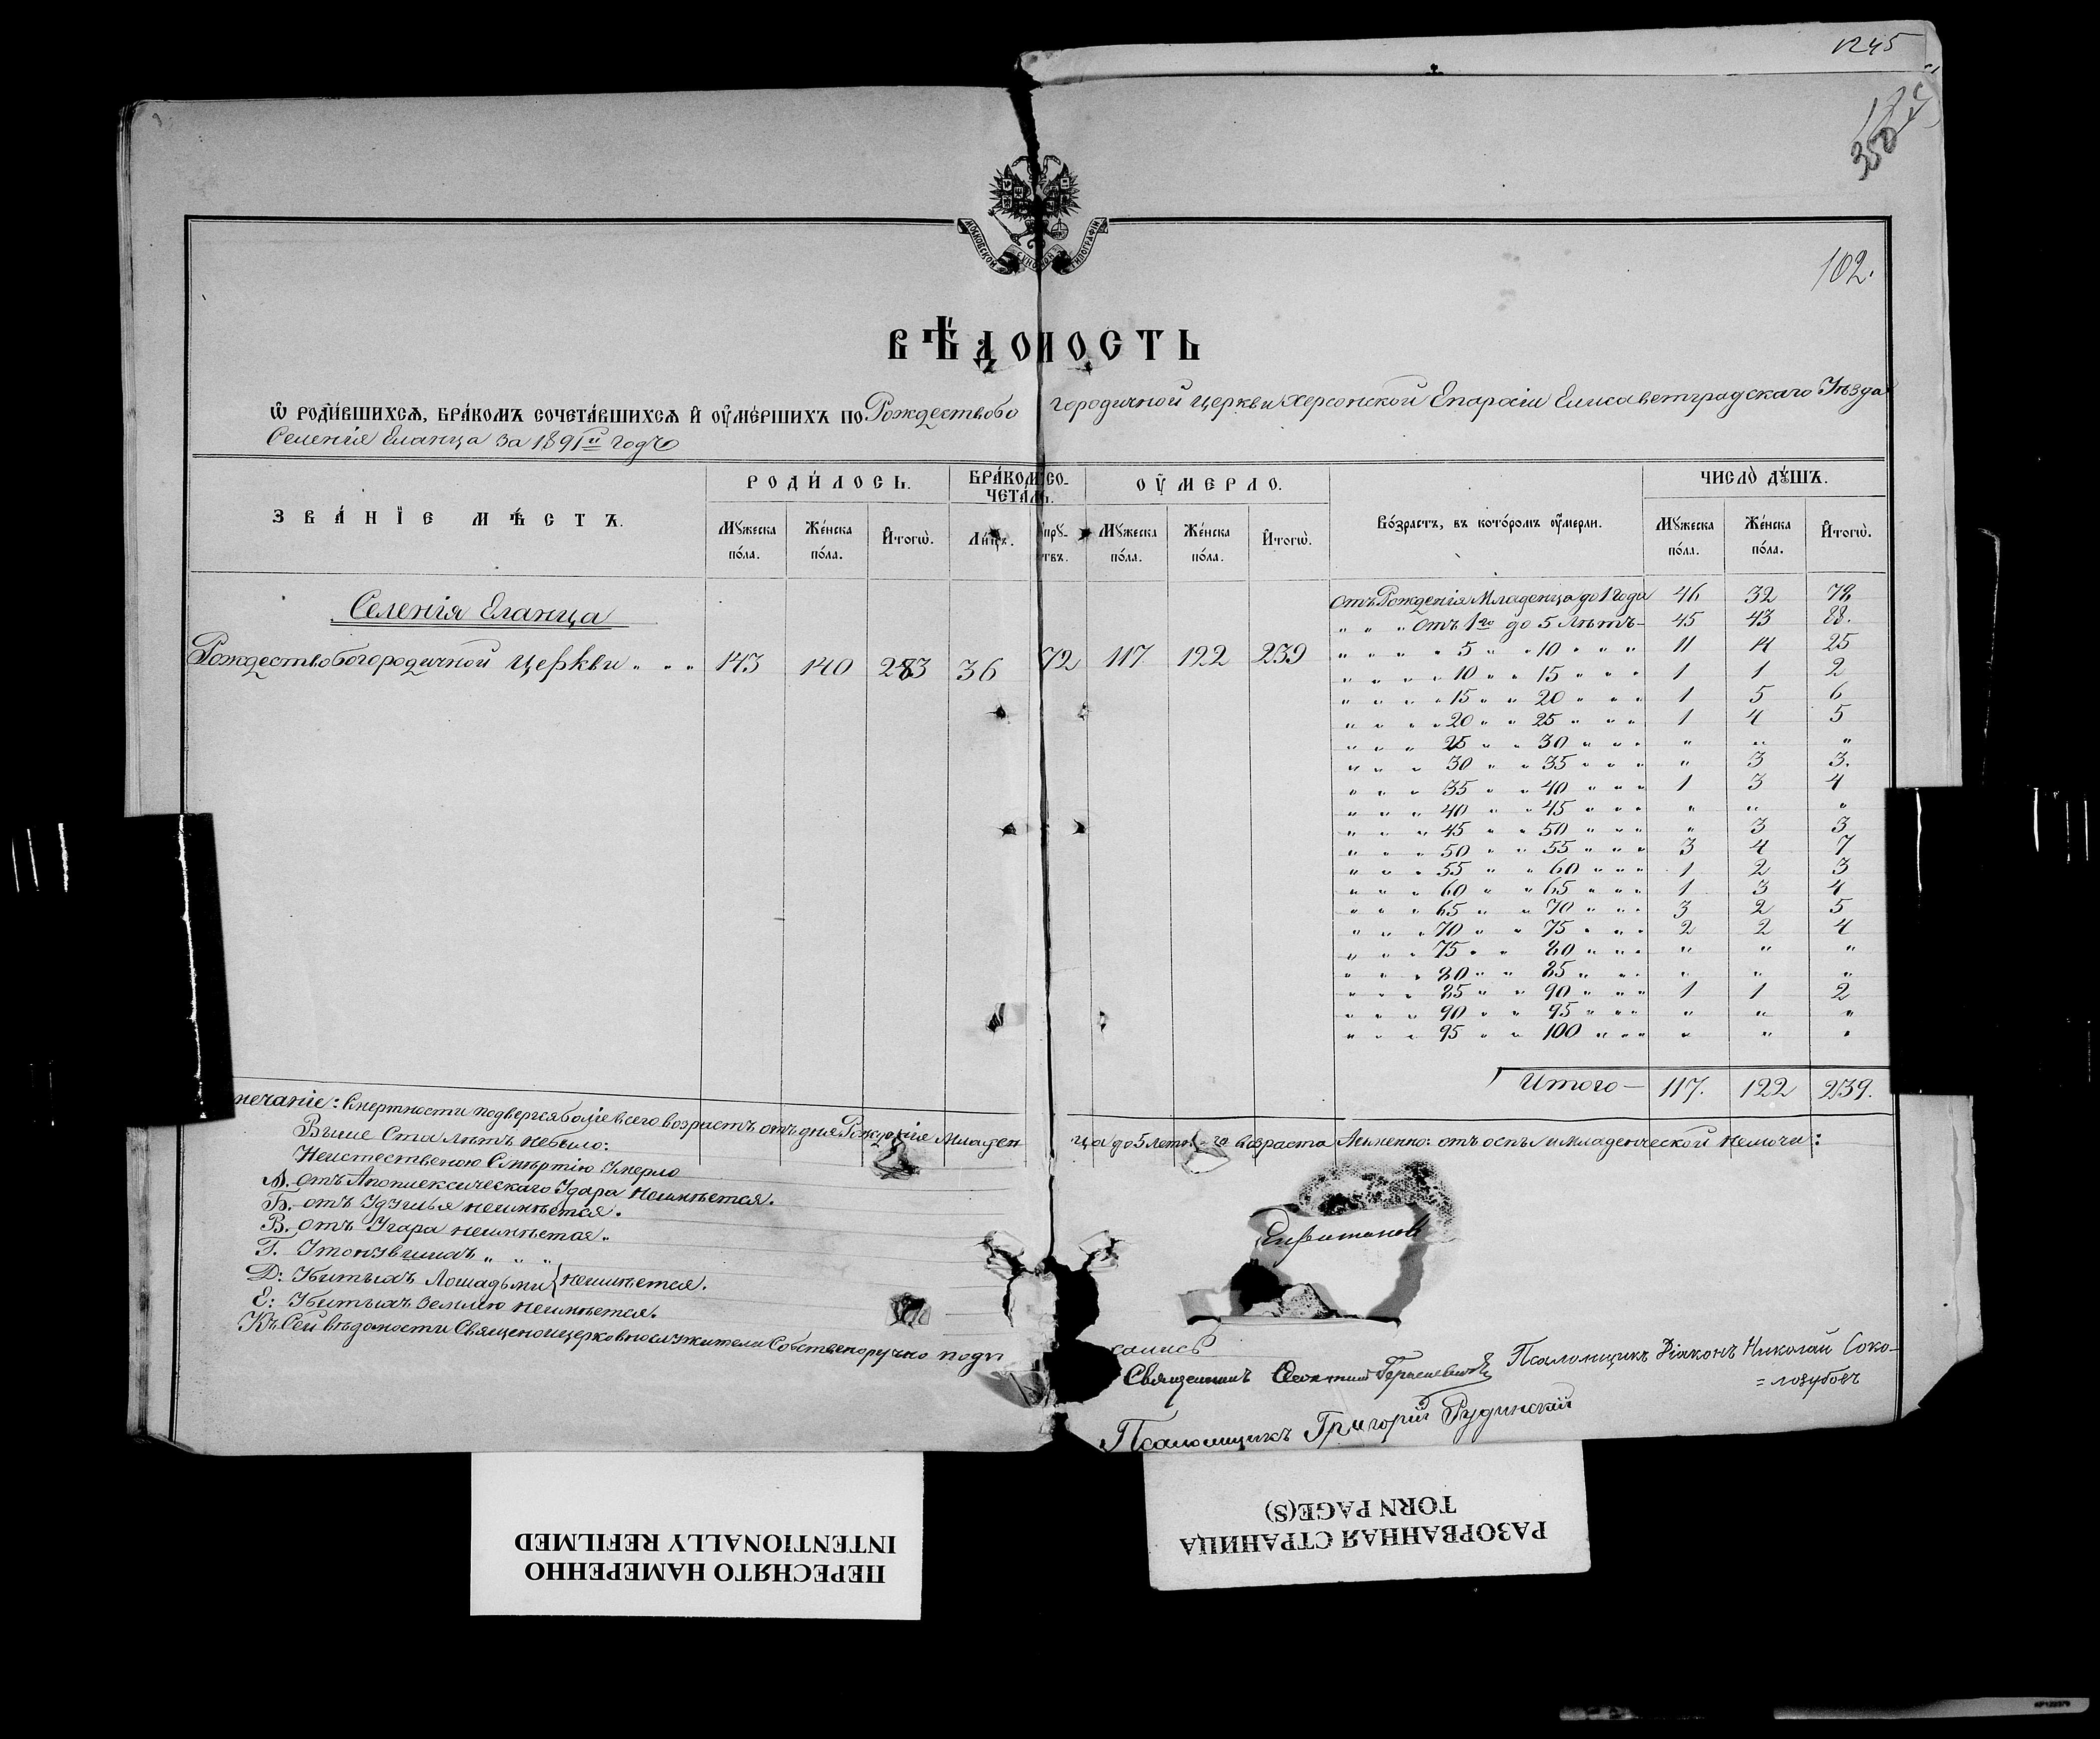 1245
102.
МОСКОВСКОЙ СѴНОД ТИПОГРАФІИ
ВѢДОМОСТЬ
Ѿ РОДИ́ВШИХСѦ, БРА́КОМЪ СОЧЕТА́ВШИХСѦ И҆ ОУ҆МЕ́РШИХЪ ПО Рождествобогородичной церкви Херсонской Епархіи Елисаветградскаго Уѣзда
Селенія Еланца за 1891й годъ
ЗВА́НІЕ МѢ́СТЪ. РОДИ́ЛОСЬ. БРА́КОМ СО-ЧЕТАЛ. ОУ҆МЕРЛО. Во́зрастъ, въ кото́ромъ оу҆мерли. ЧИСЛО̀ ДꙊ́ШЪ.
Мꙋжеска по́ла. Же́нска по́ла. И҆тогѡ̀. Ли́цъ. прꙋ-твъ. Мꙋжеска по́ла. Же́нска по́ла. И҆тогѡ̀. Мꙋжеска по́ла. Же́нска по́ла. И҆тогѡ̀.
Селенія Еланца
Рождествобогородичной церкви " " " 143 140 283 36 72 117 122 239
Отъ Рожденія Младенца до 1 года 46 32 78
" " " отъ 1го до 5 лѣтъ- 45 43 88.
" " " " 5 " " 10 " " " 11 14 25
" " " " 10 " " 15 " " " 1 1 2
" " " " 15 " " 20 " " " 1 5 6
" " " " 20 " " 25 " " " 1 4 5
" " " 25 " " 30 " " " " " "
" " " 30 " " 35 " " " " 3 3.
" " " 35 " " 40 " " " 1 3 4
" " " 40 " " 45 " " " " " "
" " " " 45 " " 50 " " " " 3 3
" " " 50 " " 55 " " " 3 4 7
" " " 55 " " 60 " " " 1 2 3
" " " 60 " " 65 " " " 1 3 4
" " " 65 " " 70 " " " 3 2 5
" " " 70 " " 75 " " " 2 2 4
" " " 75 " " 80 " " " " " "
" " " 80 " " 85 " " " " " "
" " " 85 " " 90 " " " 1 1 2
" " " 90 " " 95 " " " " " "
" " " 95 " " 100 " " " " " "
Итого - 117. 122 239.
мечаніе: Смертности подвергся боліе всего возрастъ отъ дня Рожденія Младен ца до 5 лѣтн го возраста Именно: отъ оспы и младенческой немочи:
Выше Ста лѣтъ небыло:
Неистественою Смертію Умерло
А. отъ Апоплексическаго Удара неимѣется.
Б. отъ Удушья неимѣется.
В. отъ Угара неимѣется.
Г. Утонувшихъ " " "
Д: Убитыхъ Лошадьми неимѣется.
Е: Убитыхъ Землею неимѣется.
Къ Сей вѣдомости Священоицерковнослужители Собственоручно подп
Священникъ Герасимовичъ Псаломщикъ Діаконъ Николай Соко-
=лозубовъ
Псаломщикъ Григорій Рудинскій
ПЕРЕСНЯТО НАМЕРЕННО
INTENTIONALLY REFILMED
РАЗОРВАННАЯ СТРАНИЦА
TORN PAGE(S)